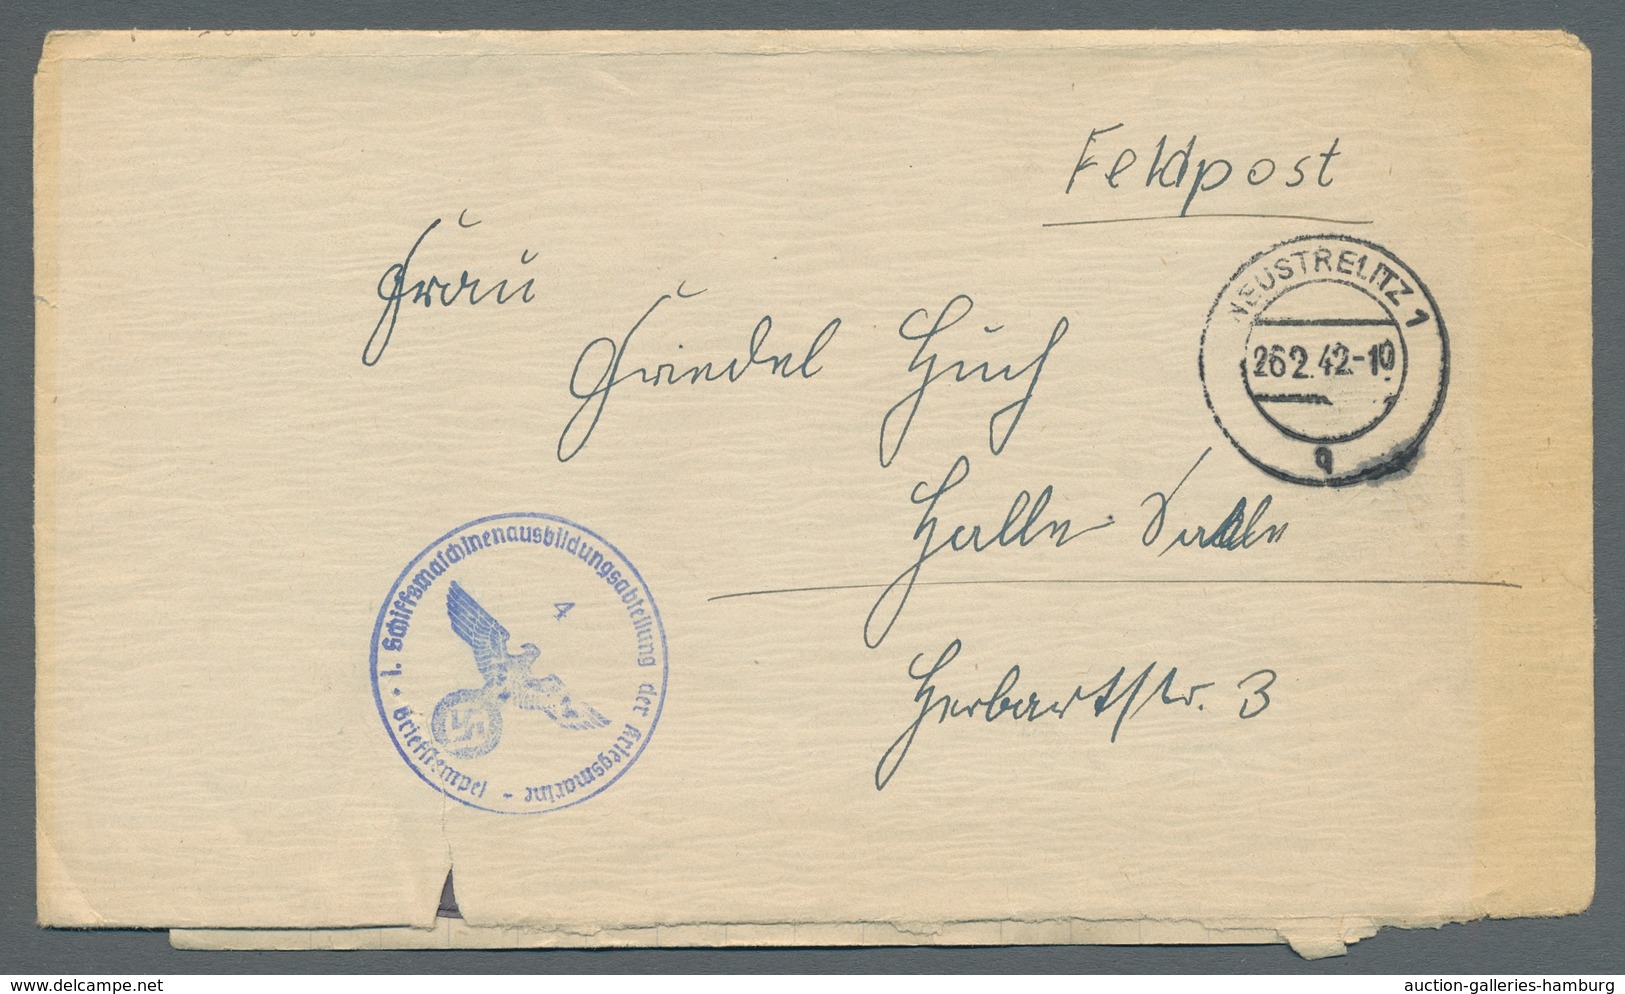 Feldpost
Frau
Friedel Huch
NEUSTRELITZ 1
26.2.42-10
q
Halle Saale
1. Schiffsmaschinenausbildungsabteilung der Kriegsmarine - Briefstempel
4
Herbartstr. 3
www.delcampe.net
auction-galleries-hamburg